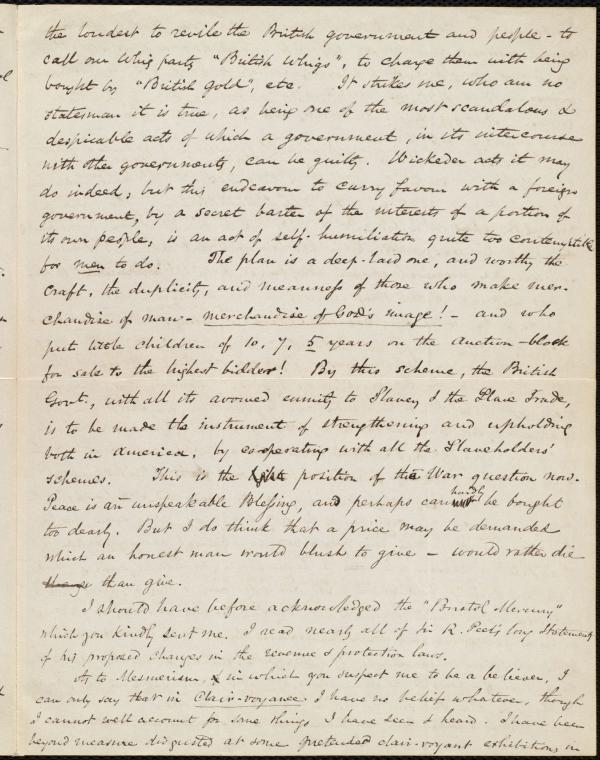 the loudest to revile the British government and people - to
call our Whig party "British Whigs", to charge them with being
bought by "British gold", etc. It strikes me, who am no
statesman it is true, as being one of the most scandalous &
despicable acts of which a government, in its intercourse
with other governments, can be guilty. Wickeder acts it may
do indeed, but this endeavour to curry favour with a foreign
government, by a secret barter of the interests of a portion of
its own people, is an act of self-humiliation quite too contemptible
for men to do. The plan is a deep-laid one, and worthy the
craft, the duplicity, and meanness of those who make mer-
chandise of man - merchandise of God's image! - and who
put little children of 10, 7, 5 years on the auction-block
for sale to the highest bidder! By this scheme, the British
Govt., with all its avowed enmity to Slavery & the Slave Trade,
is to be made the instrument of strengthening and upholding
both in America, by co-operating with all the Slaveholders'
schemes. This is the position of the War question now.
Peace is an unspeakable Blessing, and perhaps can hardly be bought
too dearly. But I do think that a price may be demanded
which an honest man would blush to give - would rather die
than give.
I should have before acknowledged the "Bristol Mercury"
which you kindly sent me. I read nearly all of Sir R. Peel's long statement
of his proposed changes in the revenue & protection laws.
As to Mesmerism, in which you suspect me to be a believer, I
can only say that in Clair-voyance I have no belief whatever, though
I cannot well account for some things I have seen & heard. I have been
beyond measure disgusted at some pretended clair-voyant exhibitions in